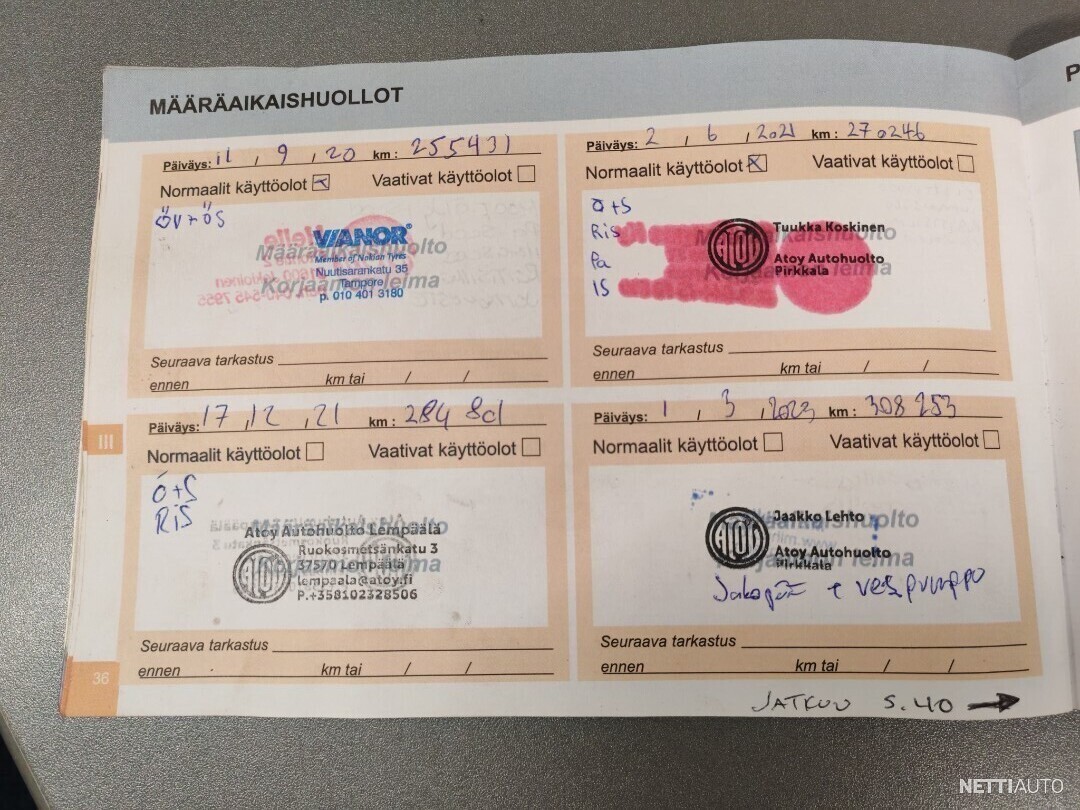 MÄÄRÄAIKAISHUOLLOT
P
Päiväys: 11, 9, 20 km: 255431
Normaalit käyttöolot Vaativat käyttöolot
öv+ös
VIANOR®
Member of Nokian Tyres
Määräaikaishuolto
Nuutisarankatu 35
Tampere
Korjaamon leima
p. 010 401 3180
Seuraava tarkastus
ennen km tai / /
Päiväys: 2, 6, 2021 km: 270246
Normaalit käyttöolot X Vaativat käyttöolot
Ö+S
Ris
Pa
IS
Tuukka Koskinen
ATOY
Atoy Autohuolto
Pirkkala
Seuraava tarkastus
ennen km tai / /
Päiväys: 17, 12, 21 km: 284 801
Normaalit käyttöolot Vaativat käyttöolot
Ö+S
RiS
Atoy Autohuolto Lempäälä
Ruokosmetsänkatu 3
37570 Lempäälä
lempaala@atoy.fi
P.+358102328506
ATOY
Seuraava tarkastus
ennen km tai / /
Päiväys: 1, 3, 2023 km: 308 253
Normaalit käyttöolot Vaativat käyttöolot
Jaakko Lehto
ATOY
Atoy Autohuolto
Pirkkala
Jakopää + vesipumppu
Seuraava tarkastus
ennen km tai / /
III
36
JATKUU S.40
NETTIAUTO